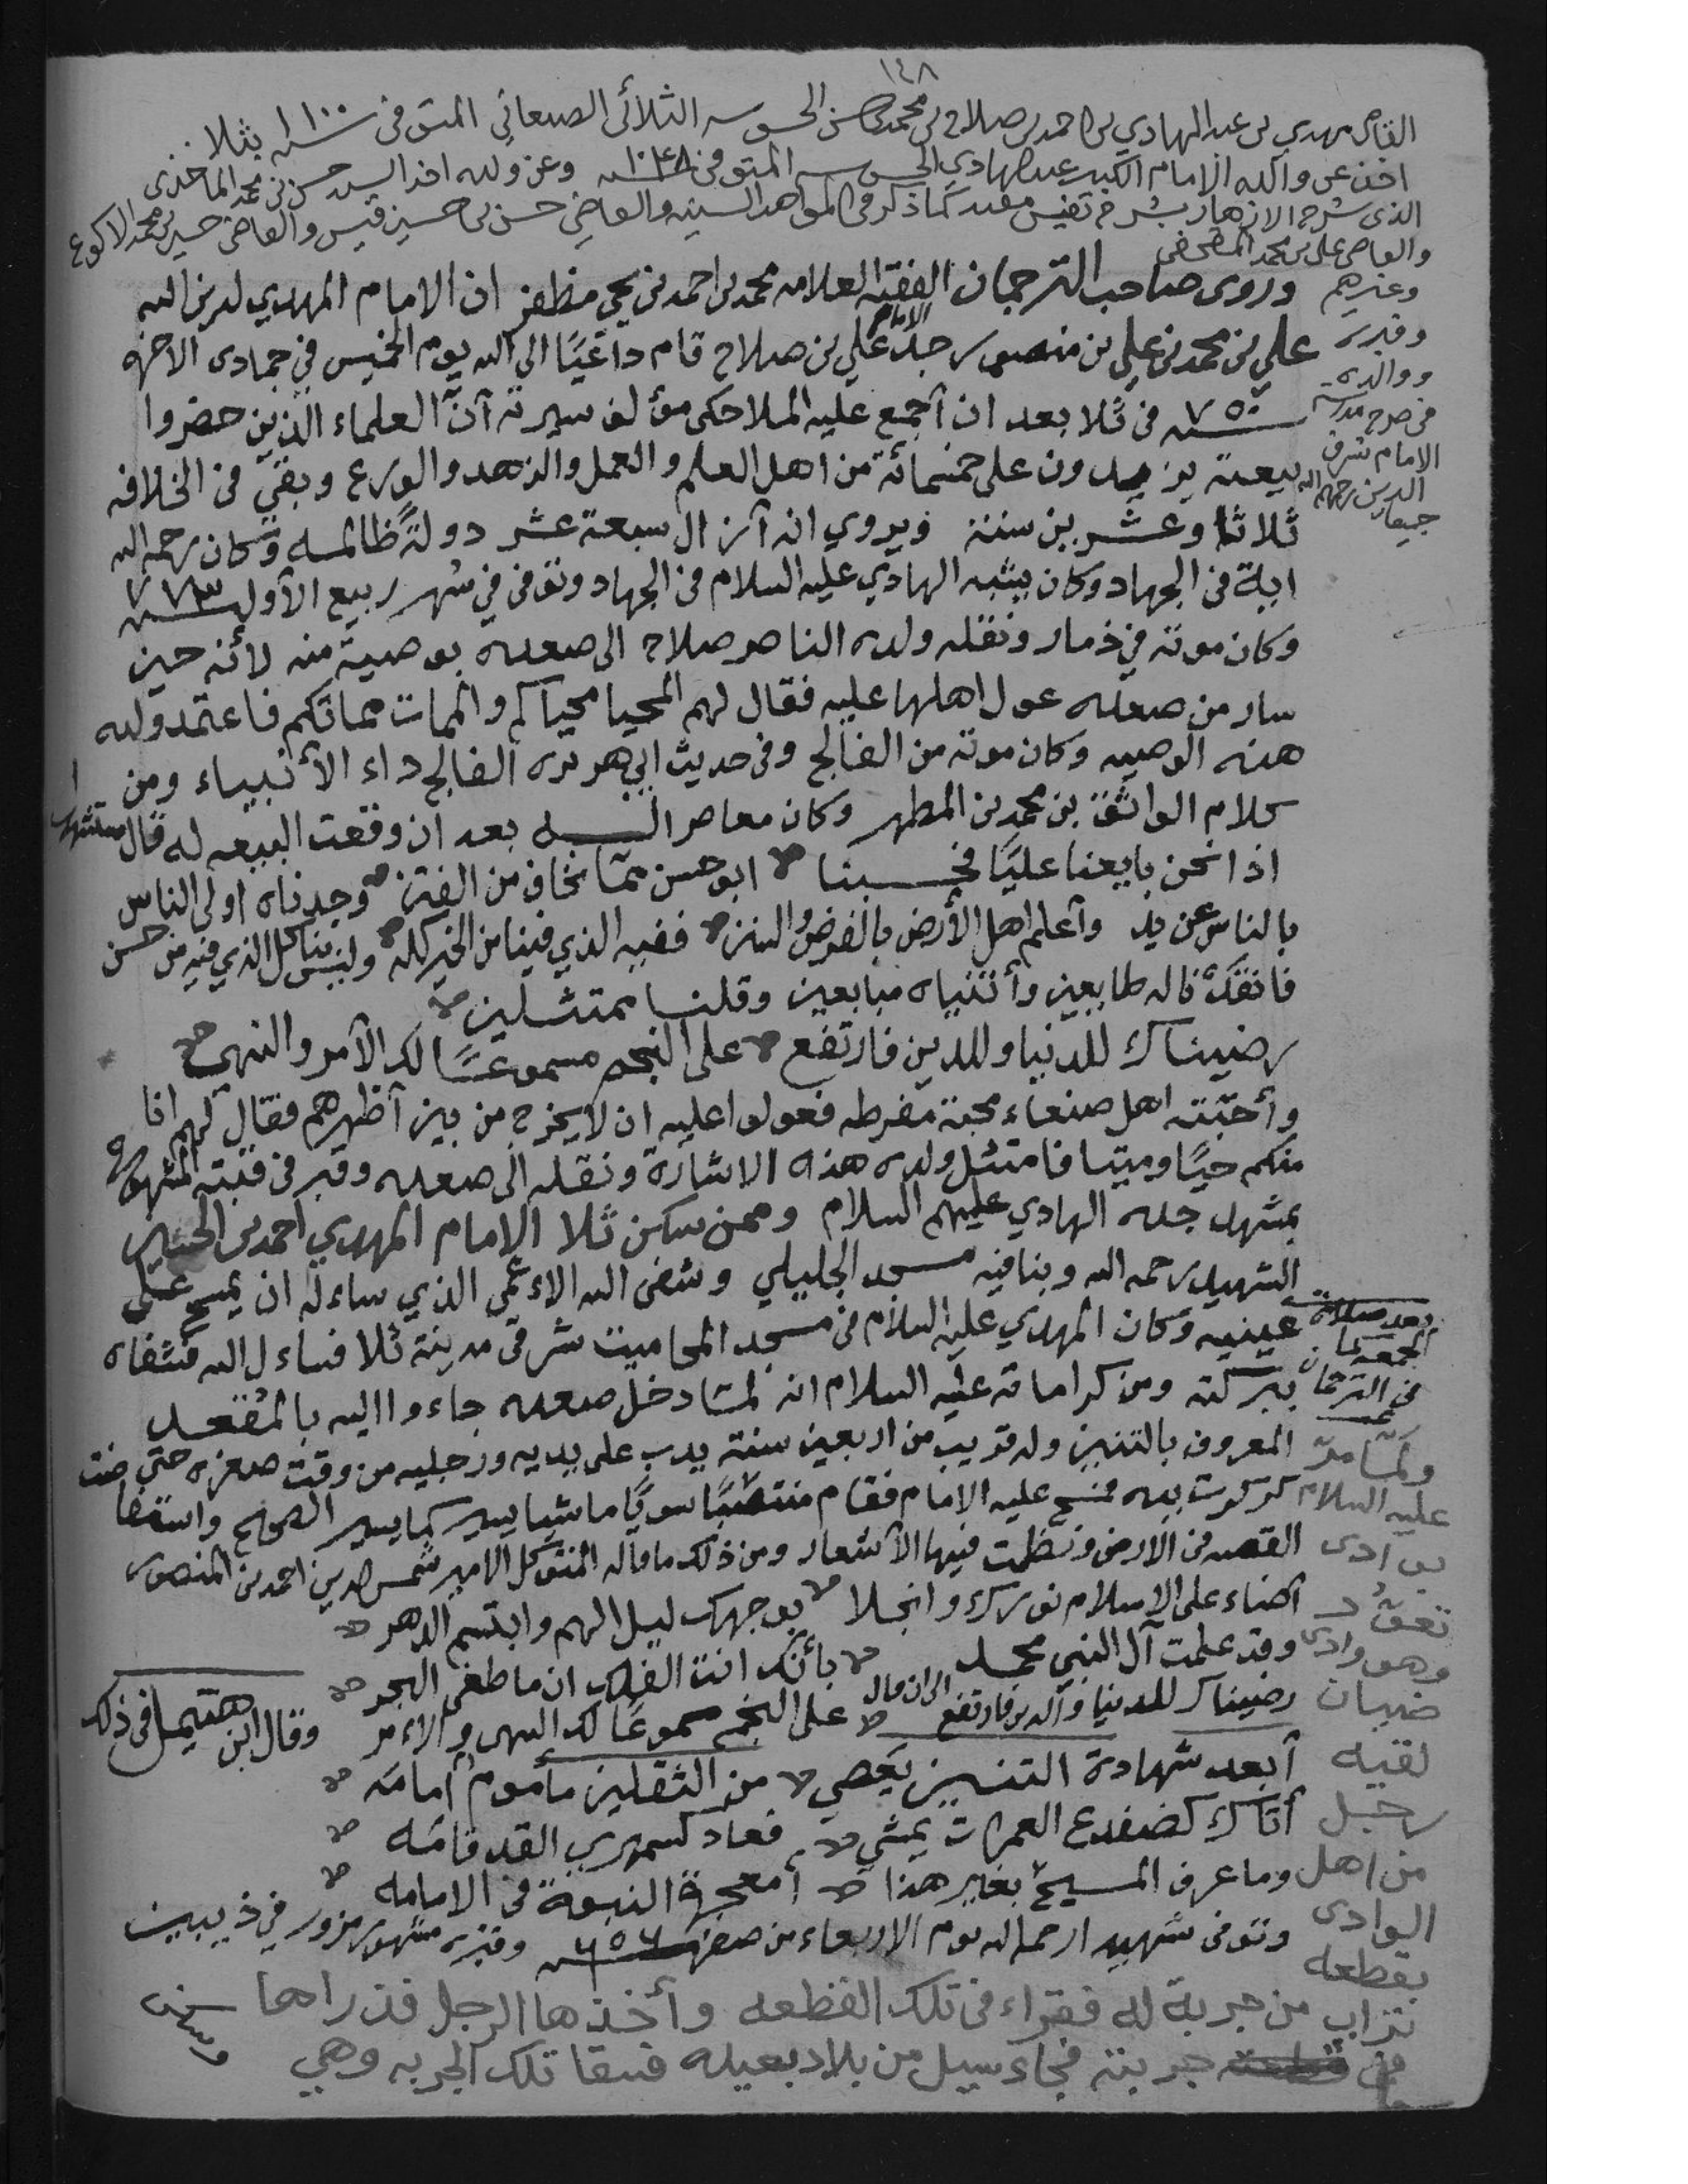 ١٤٨
القاضي مهدي بن عبد الهادي بن احمد بن صلاح بن محمد بن حسن الثلائي الصنعاني المتوفى سنة ١١٠٠ بثلا
اخذ عن والده الامام الكبير عبد الهادي المتوفى ١٠٤٨ وعن ولده اخذ السيد حسن بن محمد
الذي شرح الازهار بشرح نفيس مفيد كما ذكر في والقاضي حسن بن حسين قيس والقاضي حسين بن محمد الاكوع
والقاضي علي بن محمد
وغيرهم
وروى صاحب الترجمان الفقيه العلامه محمد بن احمد بن يحي مظفر ان الامام المهدي لدين الله
علي بن محمد بن علي بن منصور جد الامام علي بن صلاح قام داعيًا الى الله يوم الخميس في جمادى الاخره
سنة ٧٥٠ في ثلا بعد ان أجمع عليه الملا حكى مؤلف سيرته أن العلماء الذين حضروا
بيعته يزيدون على خمسمائة من اهل العلم والعمل والزهد والورع وبقي في الخلافه
ثلاثا وعشرين سنة ويروي انه أزال سبعة عشر دولة ظالمه وكان رحمه الله
اية في الجهاد وكان يشبه الهادي عليه السلام في الجهاد وتوفى في شهر ربيع الأول سنة ٧٧٣
وكان موته في ذمار ونقله ولده الناصر صلاح الى صعده بوصية منه لأنه حين
سار من صعده عول اهلها عليه فقال لهم المحيا محياكم والممات مماتكم فاعتمد ولده
هذه الوصيه وكان موته من الفالج وفي حديث ابي هريره الفالج داء الأنبياء ومن
كلام الواثق بن محمد بن المطهر وكان معاصرا له بعد ان وقعت البيعه له قال مستشهدا
اذا نحن بايعنا عليًا فحسبنا ابو حسن مما نخاف من الفتن وجدناه اولى الناس
بالناس عن يد وأعلم اهل الأرض بالفرض والسنن ففيه الذي فينا من الخير كله وليس بنا كل الذي فيه من حسن
طايعين وأتيناه مبايعين وقلنا ممتثلين
رضيناك للدنيا وللدين فارتفع على النجم مسموعًا لك الأمر والنهي
وأحبته اهل صنعاء محبة مفرطه فعولوا عليه ان لا يخرج من بين أظهرهم فقال لهم انا
منكم حيًا وميتا فامتثل ولده هذه الاشارة ونقله الى صعده وقبر في قبته المشهوره
بمشهد جده الهادي عليهم السلام وممن سكن ثلا الامام المهدي احمد بن الحسين
الشهيد رحمه الله وبنا فيه مسجد الجليلي وشفى الله الاءعمى الذي ساءله ان يمسح على
عينيه وكان المهدي عليه السلام في مسجد المحاميت شرقي مدينة ثلا فساءل الله فشفاه
ببركته ومن كراماته عليه السلام انه لما دخل صعده جاءوا اليه بالمقعد
المعروف بالتنين وله قريب من اربعين سنة يدب على يديه ورجليه من وقت صغره حتى
فمسح عليه الامام فقام منتصبًا سويًا ماشيا يسير كما يسير الصحيح
القصه في الارض ونظمت فيها الأشعار ومن ذلك ما قاله المتوكل الامير شمس الدين احمد بن المنصور
أضاء على الاسلام نورك وانجلا بوجهك ليل الهم وابتسم الدهر
وقد علمت آل النبي محمد بأنك انت الفلك ان ما طغى البحر
الى ان قال
رضيناك للدنيا وللدين فارتفع على النجم مسموعًا لك النهي والاءمر وقال ابن هتيمل في ذلك
أبعد شهادة التنين يعصي من الثقلين مأموم أمامه
أتاك كضفدع الغمرات يمشي فعاد كسمهري القد قامه
وما عرف المسيح بغير هذا أمعجزة النبوة في الامامه
وتوفى شهيدا رحمه الله يوم الاربعاء من صفر سنة ٦٥٦ وقبره مشهور مزور في ذيبين
وقبره
ووالده
في صرح مدرسة
الامام شرف
الدين رحمهم الله
جميعا
بعد صلاة
الجمعه كما
في الترجمان
ولما مر
عليه السلام
بوادي
وهو وادي
ضيان
لقيه
رجل
من اهل
الوادي
بقطعه
تراب من جربة له فقراء في تلك القطعه وأخذها الرجل فذراها
في جربته فجاء سيل من بلاد بعيده فسقا تلك الجربه وهي